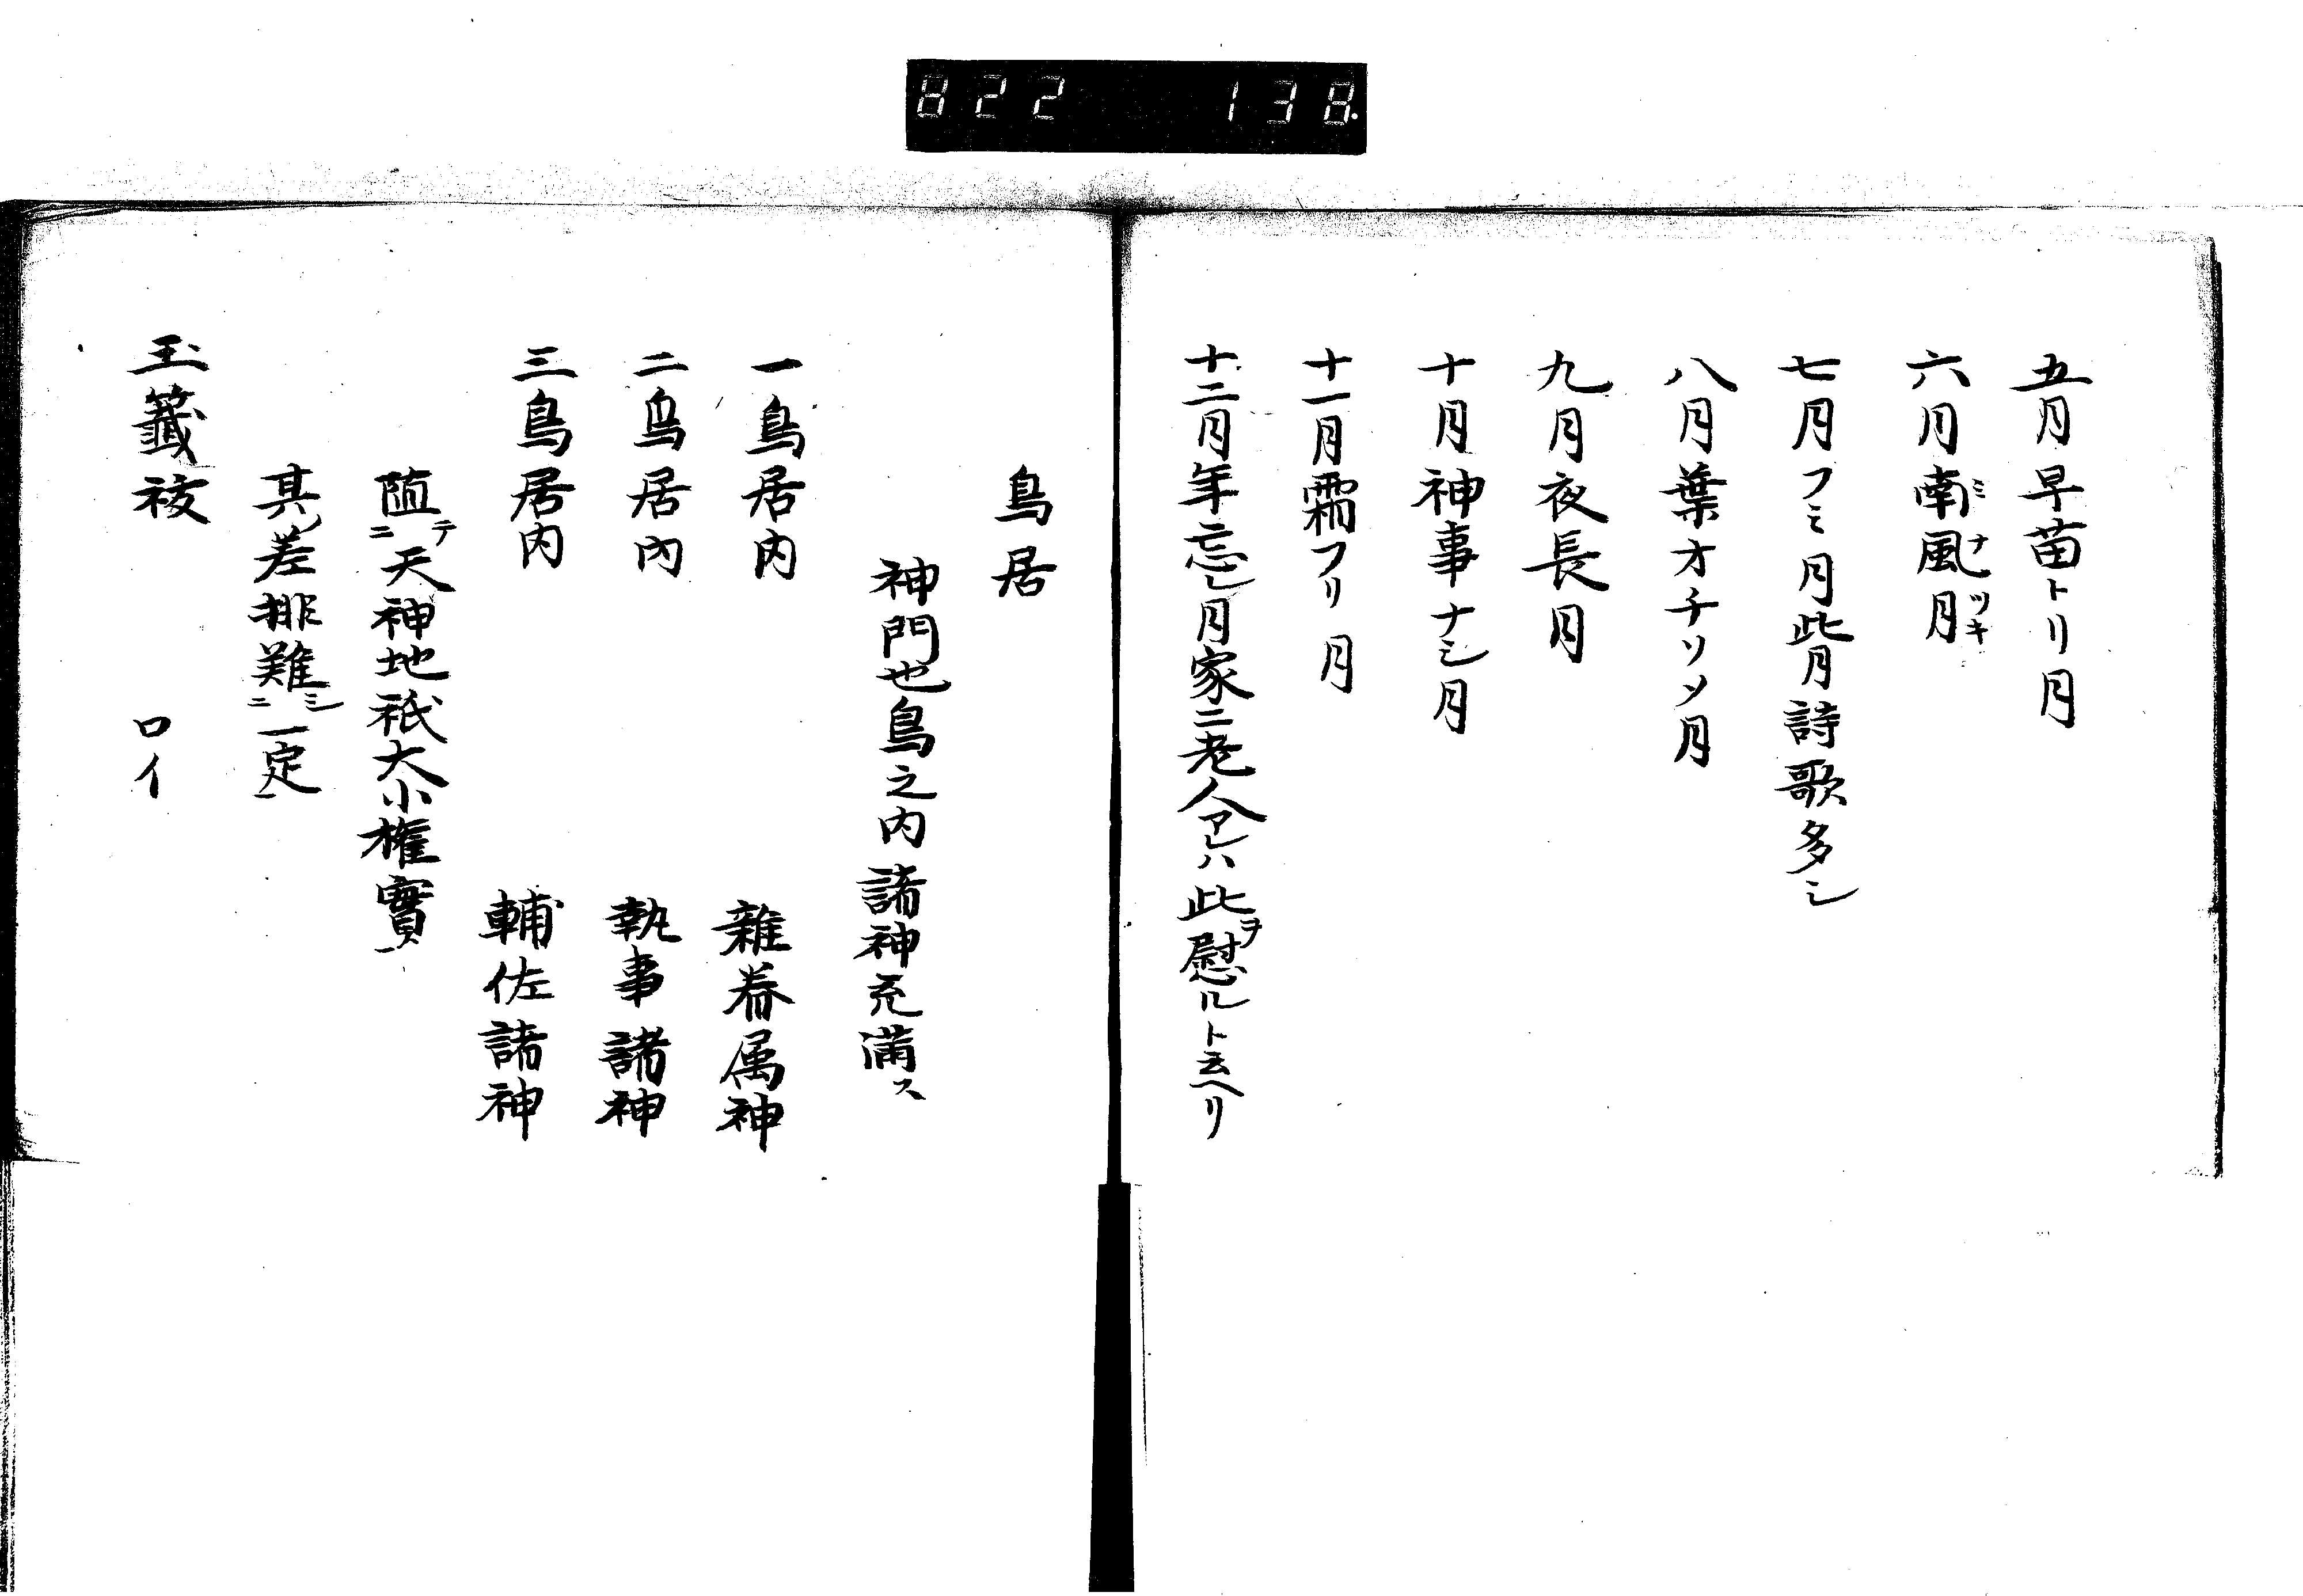 822 138.
五月早苗トリ月
六月南風月ミナツキ
七月フミ月此月詩歌多シ
八月葉オチソメ月
九月夜長月
十月神事ナシ月
十一月霜フリ月
十二月年忘レ月家ニ老人アレハ此ヲ慰ルト云ヘリ
鳥居
神門也鳥之内諸神充満ス
一鳥居内 雜眷属神
二鳥居内 執事諸神
三鳥居内 輔佐諸神
随テニ天神地祇大小権實一
其差排難シミニ一定一
玉籤祓 ロイ